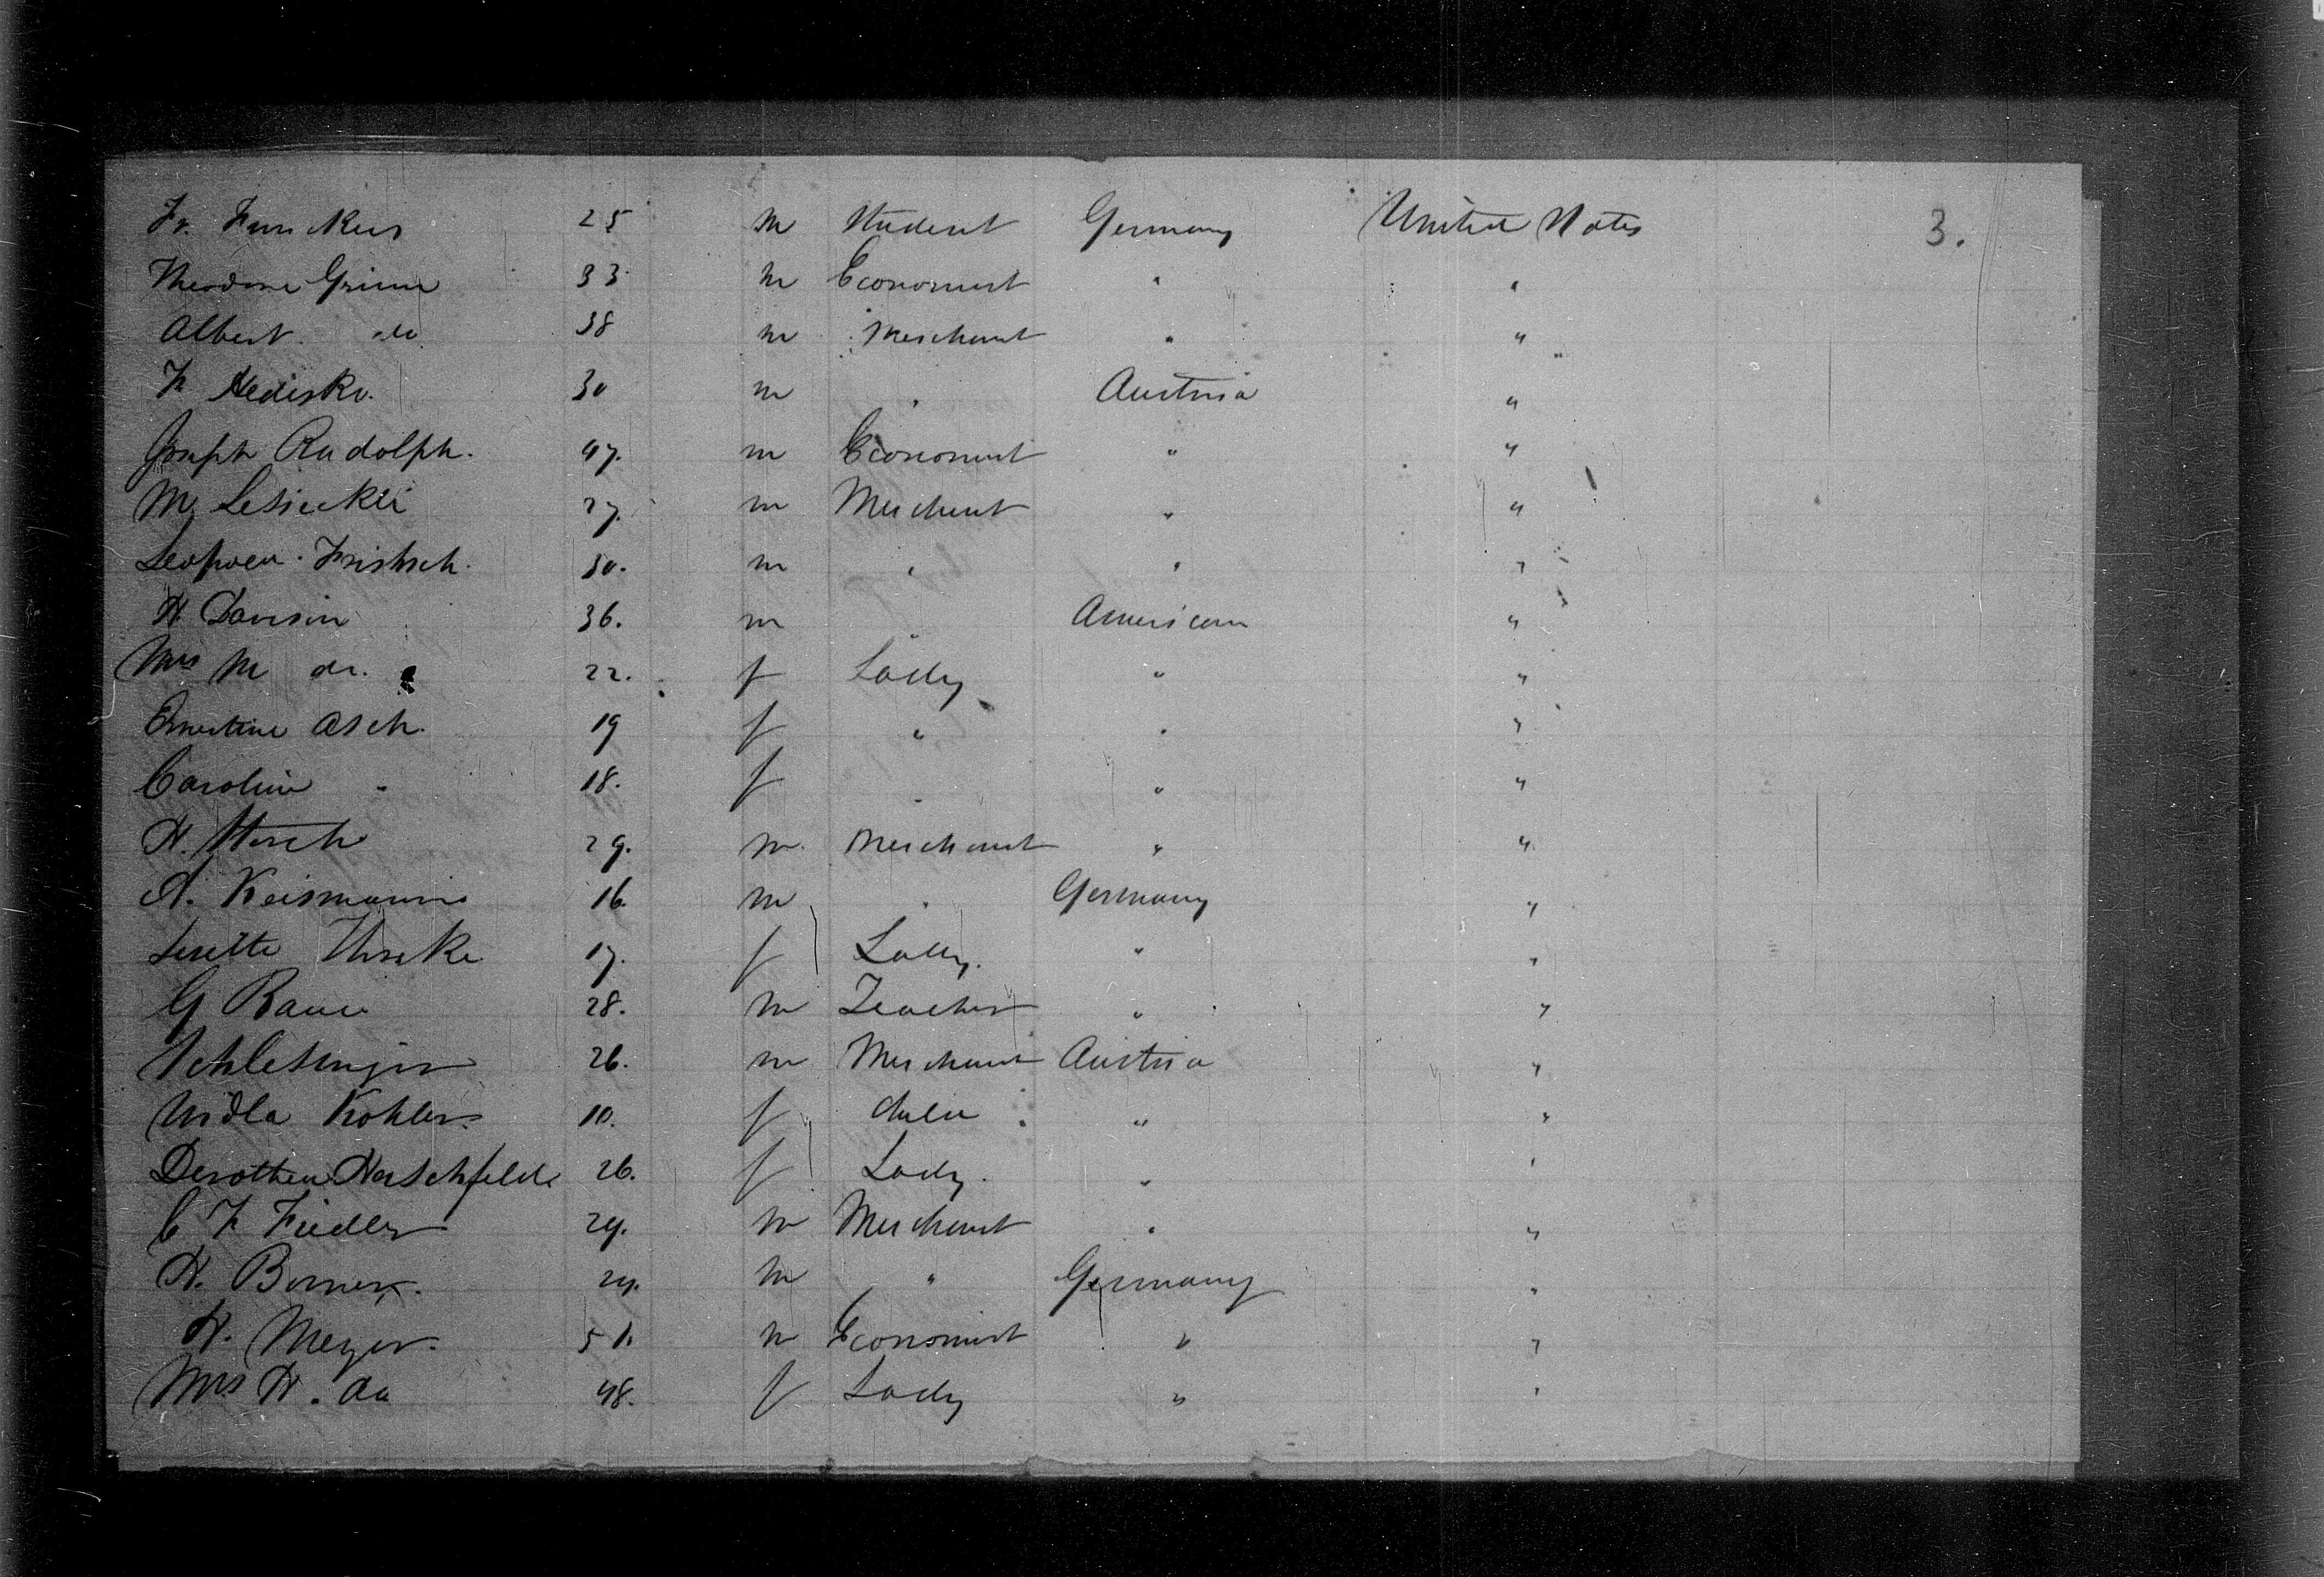 Fr. Funckes 25 m Student Germany United States 3.
Theodore Grimm 33 m Economist " "
Albert do 38 m Merchant " "
F. Hediska. 30 m " Austria "
Joseph Rudolph. 47. m Economist " "
M. Lesieckli 27. m Merchant " "
Leopold Fritsch. 30. m " " "
H. Davison 36. m " American "
Mrs M do. 22. f Lady " "
Ernestine Asch. 19 f " " "
Caroline " 18. f " " "
H. Hirsch 29. m. Merchant " "
A. Keismanns 16 m " Germany "
17. f Lady. " "
G Bauer 28. m Teacher " "
Schlesinger 26. m Merchant Austria "
Kohler. 10. f Child " "
Dorothea Herschfeld 26. f Lady. " "
C F Fiedler 29. m Merchant " "
H. Borner. 29. m " Germany "
H. Meyer. 51. m Economist " "
Mrs H. do 48. f Lady " "